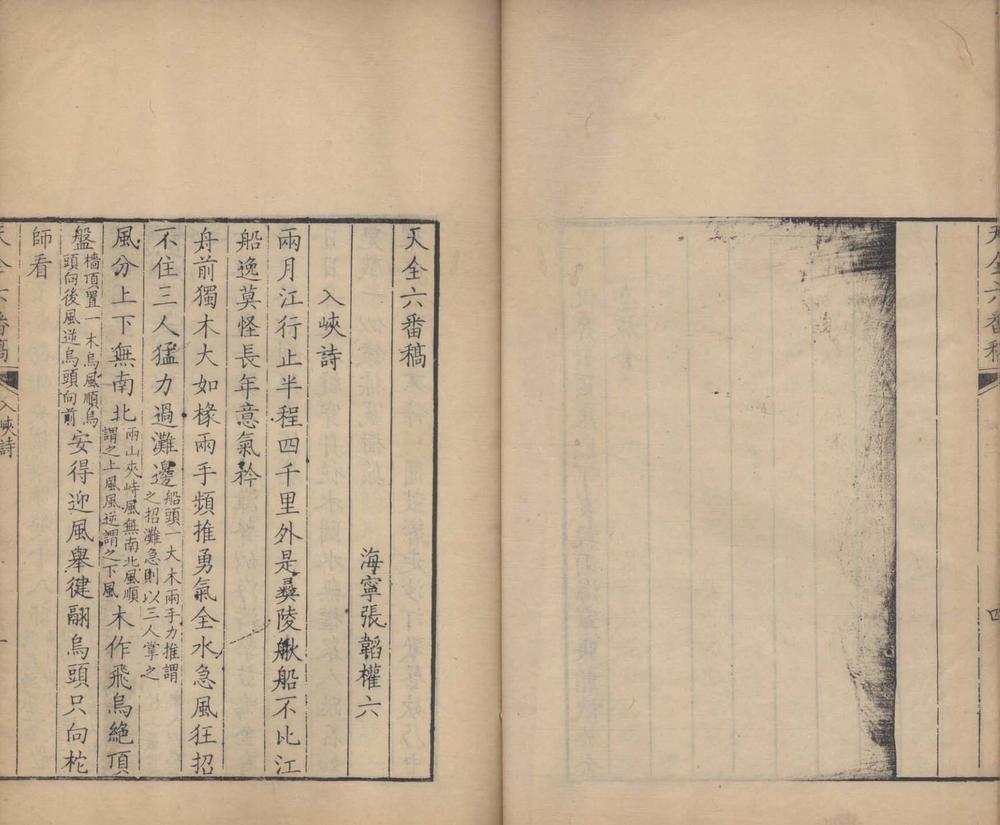 天全六番稿
四
天全六番稿
海寧張韜權六
入峽詩
兩月江行止半程四千里外是彞陵船不比江
船逸莫怪長年意氣矜
舟前獨木大如椽兩手頻推勇氣全水急風狂招
不住三人猛力過灘邊船頭一大木兩手力推謂之招灘急則以三人掌之
風分上下無南北兩山夾峙風無南北風順謂之上風風逆謂之下風木作飛烏絶頂
盤檣頂置一木烏風順烏頭向後風逆烏頭向前安得迎風舉徤翮烏頭只向柁
師看
天全六番稿
入峽詩
一